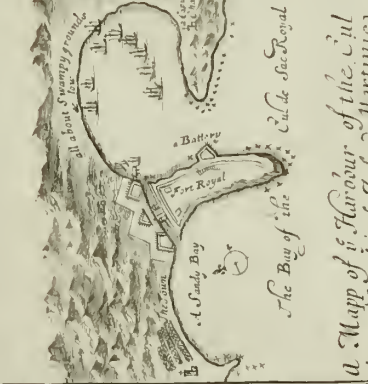 all about Swampy grounds
low
a Battery
Fort Royal
Cul de Sac Royal
The Bay of the
A Sandy Bay
The Town
A Mapp of ye Harbour of the Cul